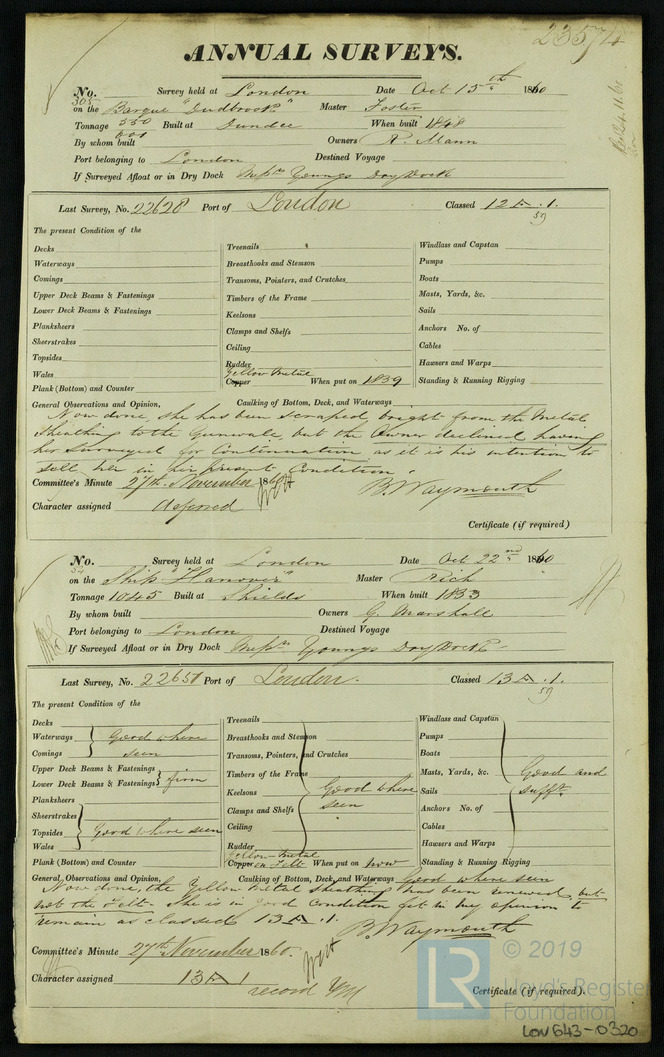 23574
ANNUAL SURVEYS.
No. 305 Survey held at London Date Oct 15th 1860
on the Barque "Dudbrook" Master Foster
Tonnage 550 601 Built at Dundee When built 1848
By whom built Owners R. Mann
Port belonging to London Destined Voyage
If Surveyed Afloat or in Dry Dock Messrs Youngs Dry Dock
Last Survey, No. 22628 Port of London Classed 12 A.1. 59
The present Condition of the
Decks
Waterways
Comings
Upper Deck Beams & Fastenings
Lower Deck Beams & Fastenings
Planksheers
Sheerstrakes
Topsides
Wales
Plank (Bottom) and Counter
Treenails
Breasthooks and Stemson
Transoms, Pointers, and Crutches
Timbers of the Frame
Keelsons
Clamps and Shelfs
Ceiling
Rudder
Yellow Metal
Copper When put on 1859
Windlass and Capstan
Pumps
Boats
Masts, Yards, &c.
Sails
Anchors No. of
Cables
Hawsers and Warps
Standing & Running Rigging
General Observations and Opinion, Caulking of Bottom, Deck, and Waterways
Now done, she has been scraped bright from the Metal
sheathing to the Gunwale, but the Owner declined having
her surveyed for Continuation as it is his intention to
sell her in her present Condition"
Committee's Minute 27th November 1860
B. Waymouth
Character assigned deferred
Certificate (if required)
No. Survey held at London Date Oct 22nd 1860
on the Ship "Hanover" Master Rich
Tonnage 1045 Built at Shields When built 1853
By whom built Owners G. Marshall
Port belonging to London Destined Voyage
If Surveyed Afloat or in Dry Dock Messrs Youngs Dry Dock
Last Survey, No. 22651 Port of London. Classed 13 A.1. 59
The present Condition of the
Decks
Waterways Good where
Comings seen
Upper Deck Beams & Fastenings
Lower Deck Beams & Fastenings firm
Planksheers
Sheerstrakes
Topsides Good where seen
Wales
Plank (Bottom) and Counter
Treenails
Breasthooks and Stemson
Transoms, Pointers, and Crutches
Timbers of the Frame
Keelsons Good where
Clamps and Shelfs seen
Ceiling
Rudder
Yellow Metal
Copper on Felt When put on now
Windlass and Capstan
Pumps
Boats
Masts, Yards, &c. Good and
Sails sufft.
Anchors No. of
Cables
Hawsers and Warps
Standing & Running Rigging
General Observations and Opinion, Caulking of Bottom, Deck, and Waterways Good where seen
Now done, the Yellow Metal sheathing has been renewed, but
not the Felt. She is in good Condition fit in my opinion to
remain as classed 13 A.1.
B. Waymouth
Committee's Minute 27th November 1860.
Character assigned 13 A 1
record YM
Certificate (if required).
LR © 2019
Lloyd's Register
Foundation
LON643-0320